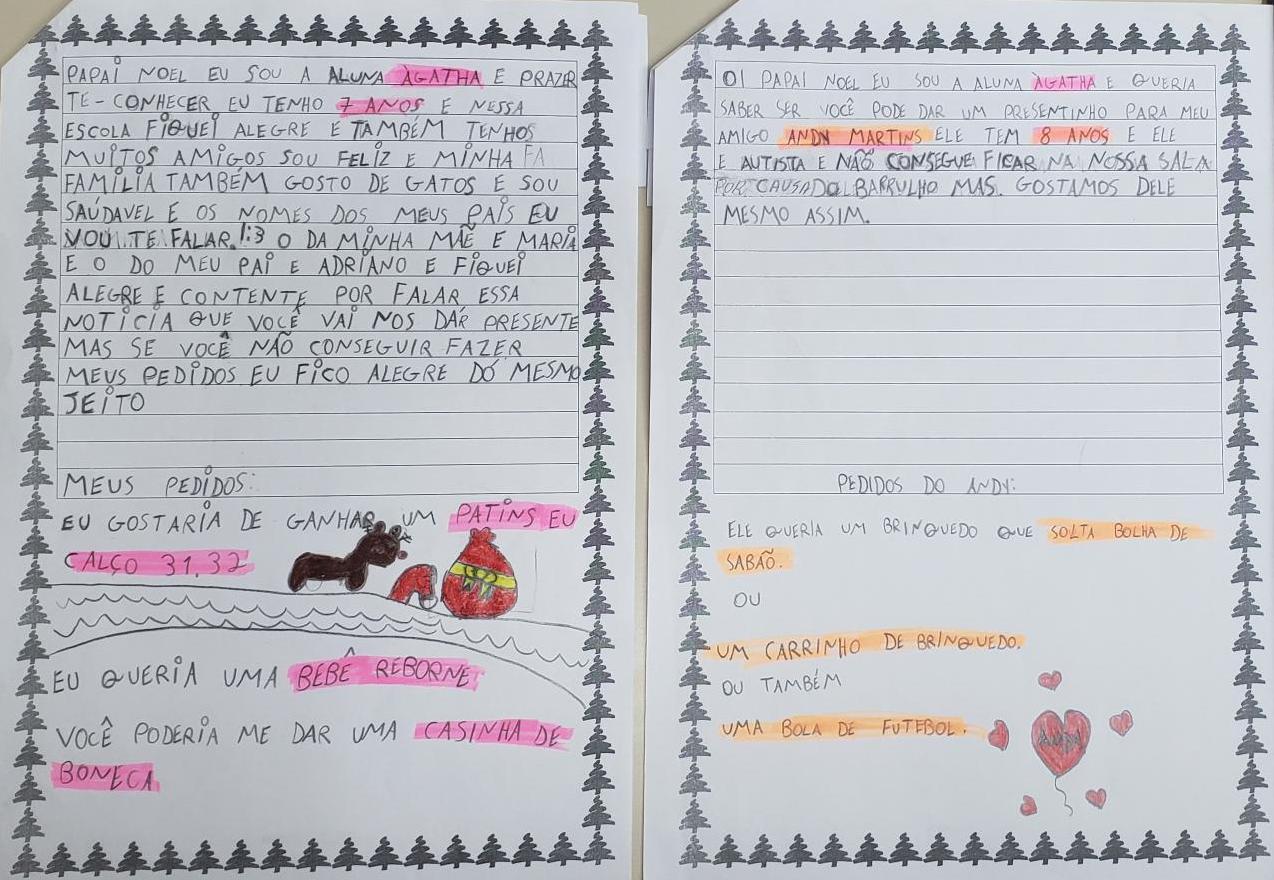 PAPAI NOEL EU SOU A ALUNA ÀGATHA E PRAZER
TE-CONHECER EU TENHO 7 ANOS E NESSA
ESCOLA FIQUEI ALEGRE E TAMBÉM TENHOS
MUITOS AMIGOS SOU FELIZ E MINHA FA
FAMÍLIA TAMBÉM GOSTO DE GATOS E SOU
SAÚDAVEL E OS NOMES DOS MEUS PAIS EU
VOU TE FALAR.!:3 O DA MINHA MÃE E MARIA
E O DO MEU PAI E ADRIANO E FIQUEI
ALEGRE E CONTENTE POR FALAR ESSA
NOTÍCIA QUE VOCÊ VAI NOS DÁR PRESENTE
MAS SE VOCÊ NÃO CONSEGUIR FAZER
MEUS PEDIDOS EU FICO ALEGRE DÓ MESMO
JEITO
MEUS PEDIDOS:
EU GOSTARIA DE GANHAR UM PATINS EU
CALÇO 31,32
EU QUERIA UMA BEBÊ REBORNE
VOCÊ PODERIA ME DAR UMA CASINHA DE
BONECA
OI PAPAI NOEL EU SOU A ALUNA ÀGATHA E QUERIA
SABER SER VOCÊ PODE DAR UM PRESENTINHO PARA MEU
AMIGO ANDY MARTINS ELE TEM 8 ANOS E ELE
E AUTISTA E NÃO CONSEGUE FICAR NA NOSSA SALA
POR CAUSA DO BARRULHO MAS. GOSTAMOS DELE
MESMO ASSIM.
PEDIDOS DO ANDY:
ELE QUERIA UM BRINQUEDO QUE SOLTA BOLHA DE
SABÃO.
OU
UM CARRINHO DE BRINQUEDO.
OU TAMBÉM
UMA BOLA DE FUTEBOL.
ANDY